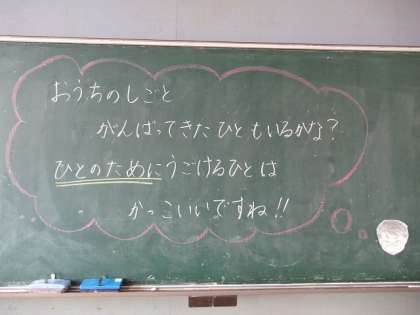 おうちのしごと
がんばってきたひともいるかな?
ひとのためにうごけるひとは
かっこいいですね!!